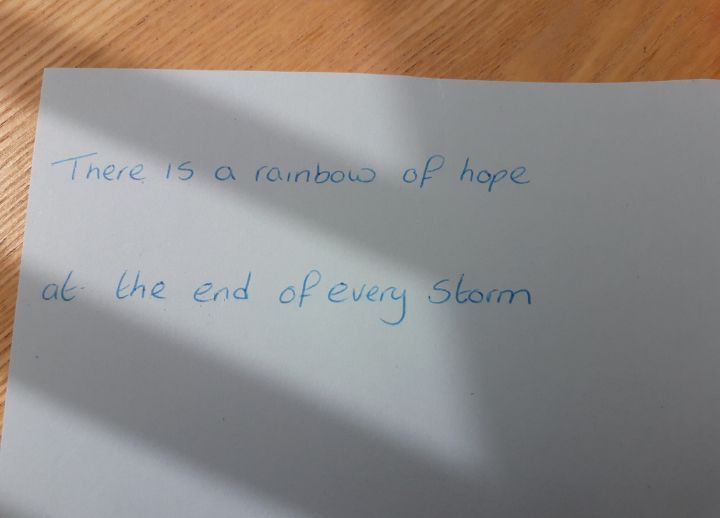 There is a rainbow of hope
at the end of every Storm